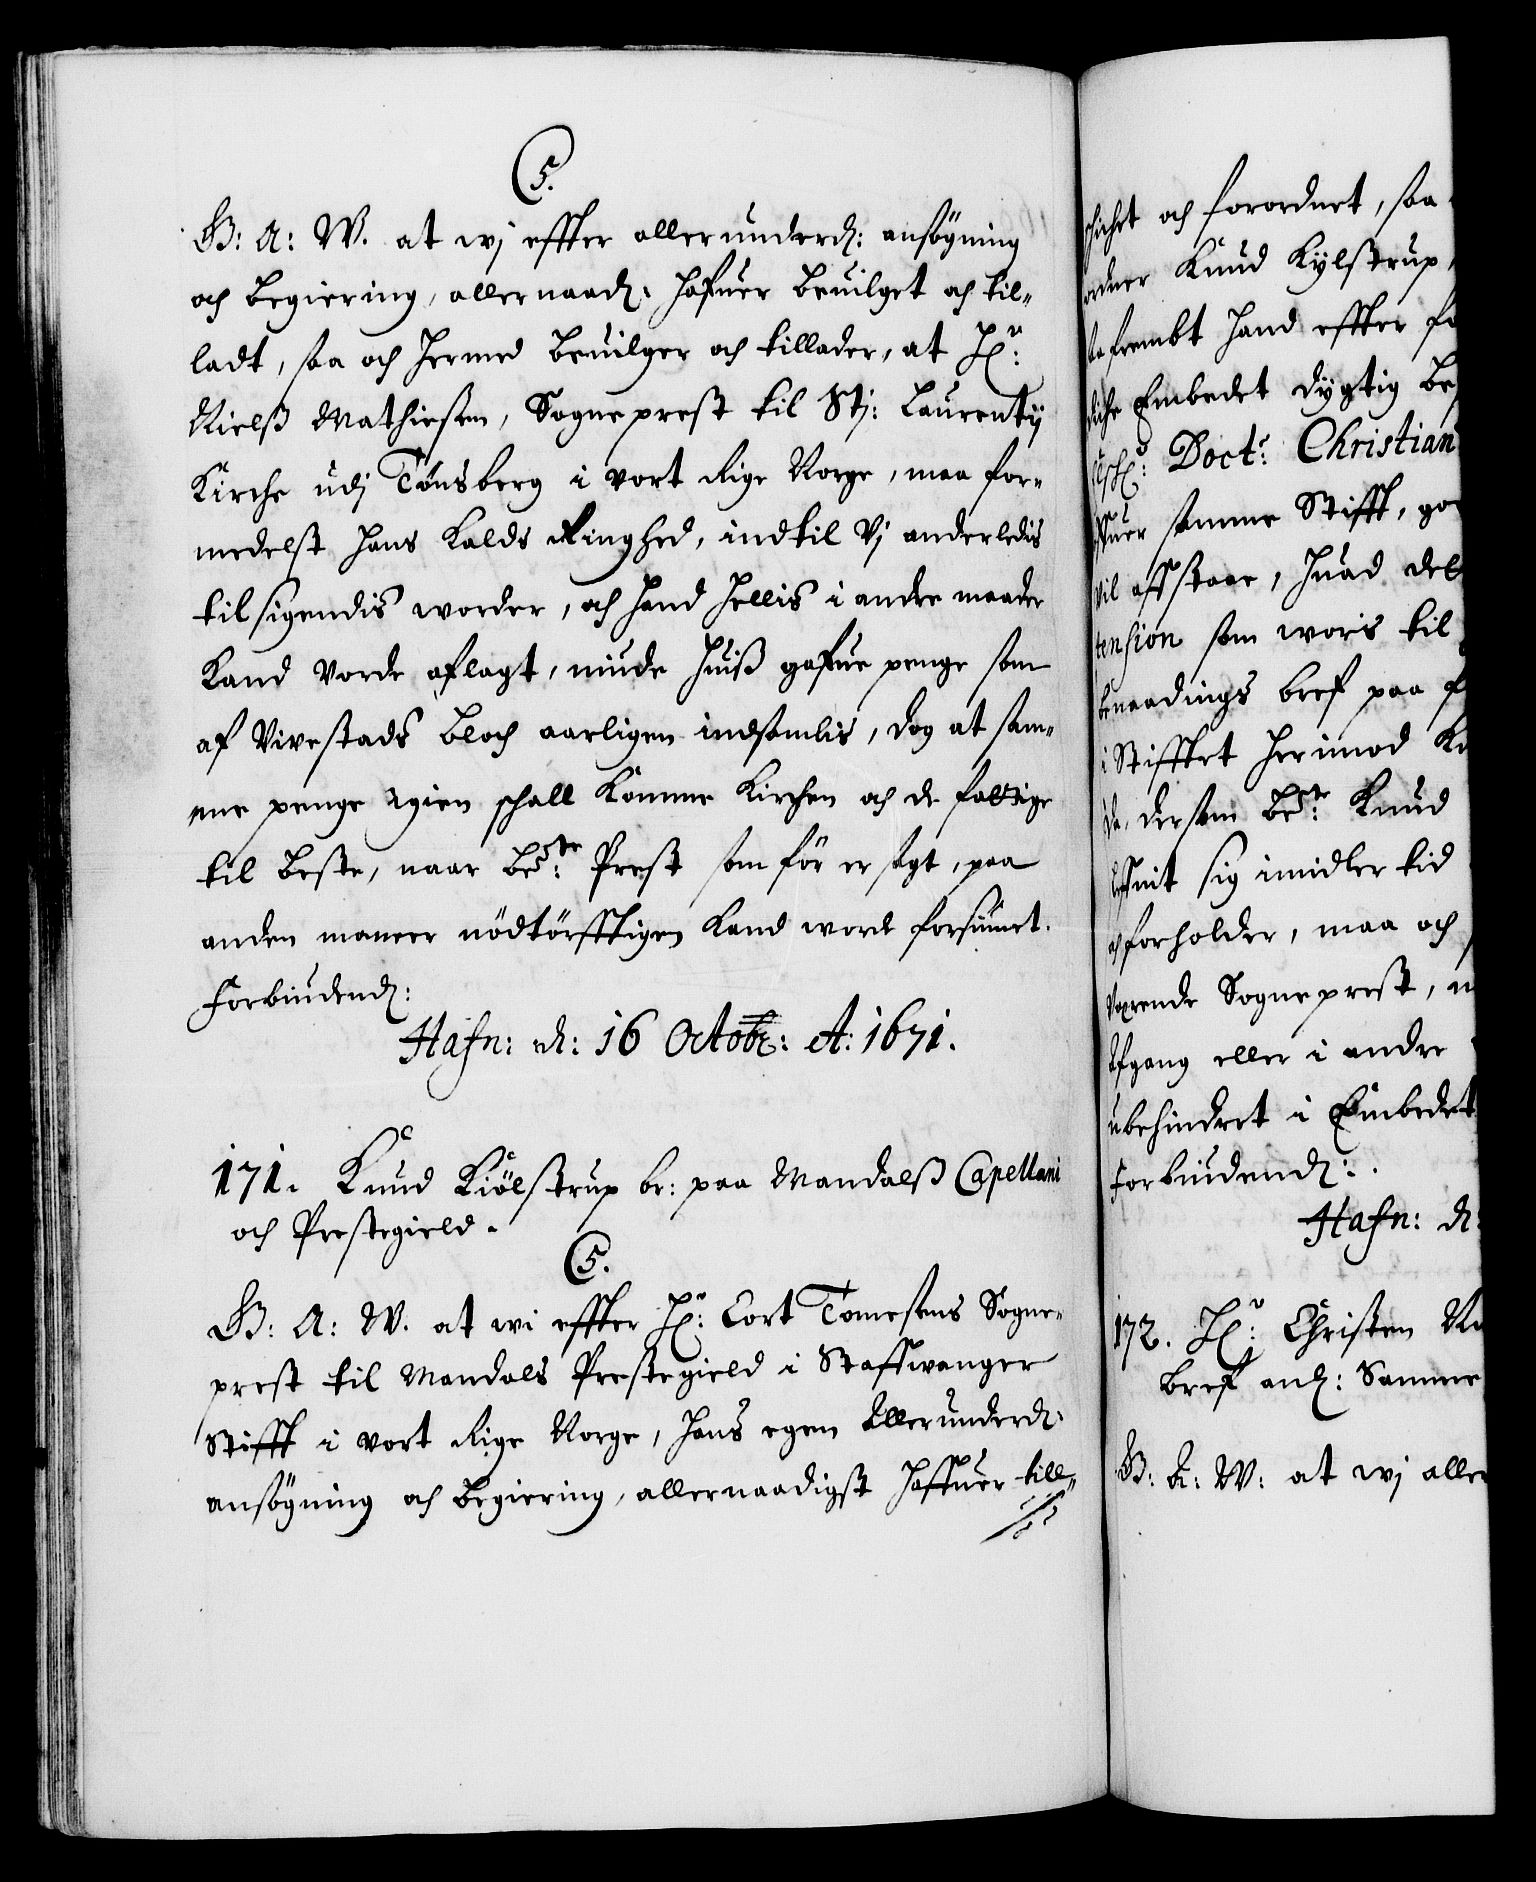 C5.
G: A: W. at wj effter allerunderd: ansøgning
och begiering, allernaad: hafuer beuilget och til-
ladt, saa och hermed beuilger och tillader, at Hr:
Nielß Mathiesen, Sogneprest til Stj: Laurentij
Kirche udj Tønsberg i vort Rige Norge, maa for-
medelst hans Kalds Ringhed, indtil Vj anderledis
tilsigendis worder, och hand hellis i andre maader
Kand vorde aflagt, niude huiß gafue penge som
af Vivestads Bloch aarligen indsamlis, dog at sam-
me penge igien schall komme Kirchen och de fattige
til beste, naar bete: Prest som før er sagt, paa
anden maneer nødtørfftigen kand worde forsiunet.
Forbiudend:
Hafn: d: 16 Octobr: A: 1671.
171. Knud Kiölstrup br: paa Mandalß Capellani
och Prestegield.
C5.
G: A: W. at wi effter Hr: Cort Tomesens Sogne-
prest til Mandals Prestegield i Staffwanger
Stifft i vort Rige Norge, hans egen Allerunderd:
ansøgning och begiering, allernaadigst haffuer till-
schichet och forordnet, saa
ordner Knud Kylstrup,
frembt hand effter
Embedet dygtig
Doctr: Christian
samme Stifft,
vil affstaae, huad
tension som woris til
benaadings bref paa
i Stifftet herimod
dersom bete: Knud
sig imidler tid
och forholder, maa och
værende Sogneprest,
Afgang eller i andre
ubehindret i Embedet
Forbiudend:
Hafn: d:
172. Hr: Christen
bref anl: Samme
G: A: W: at wj aller